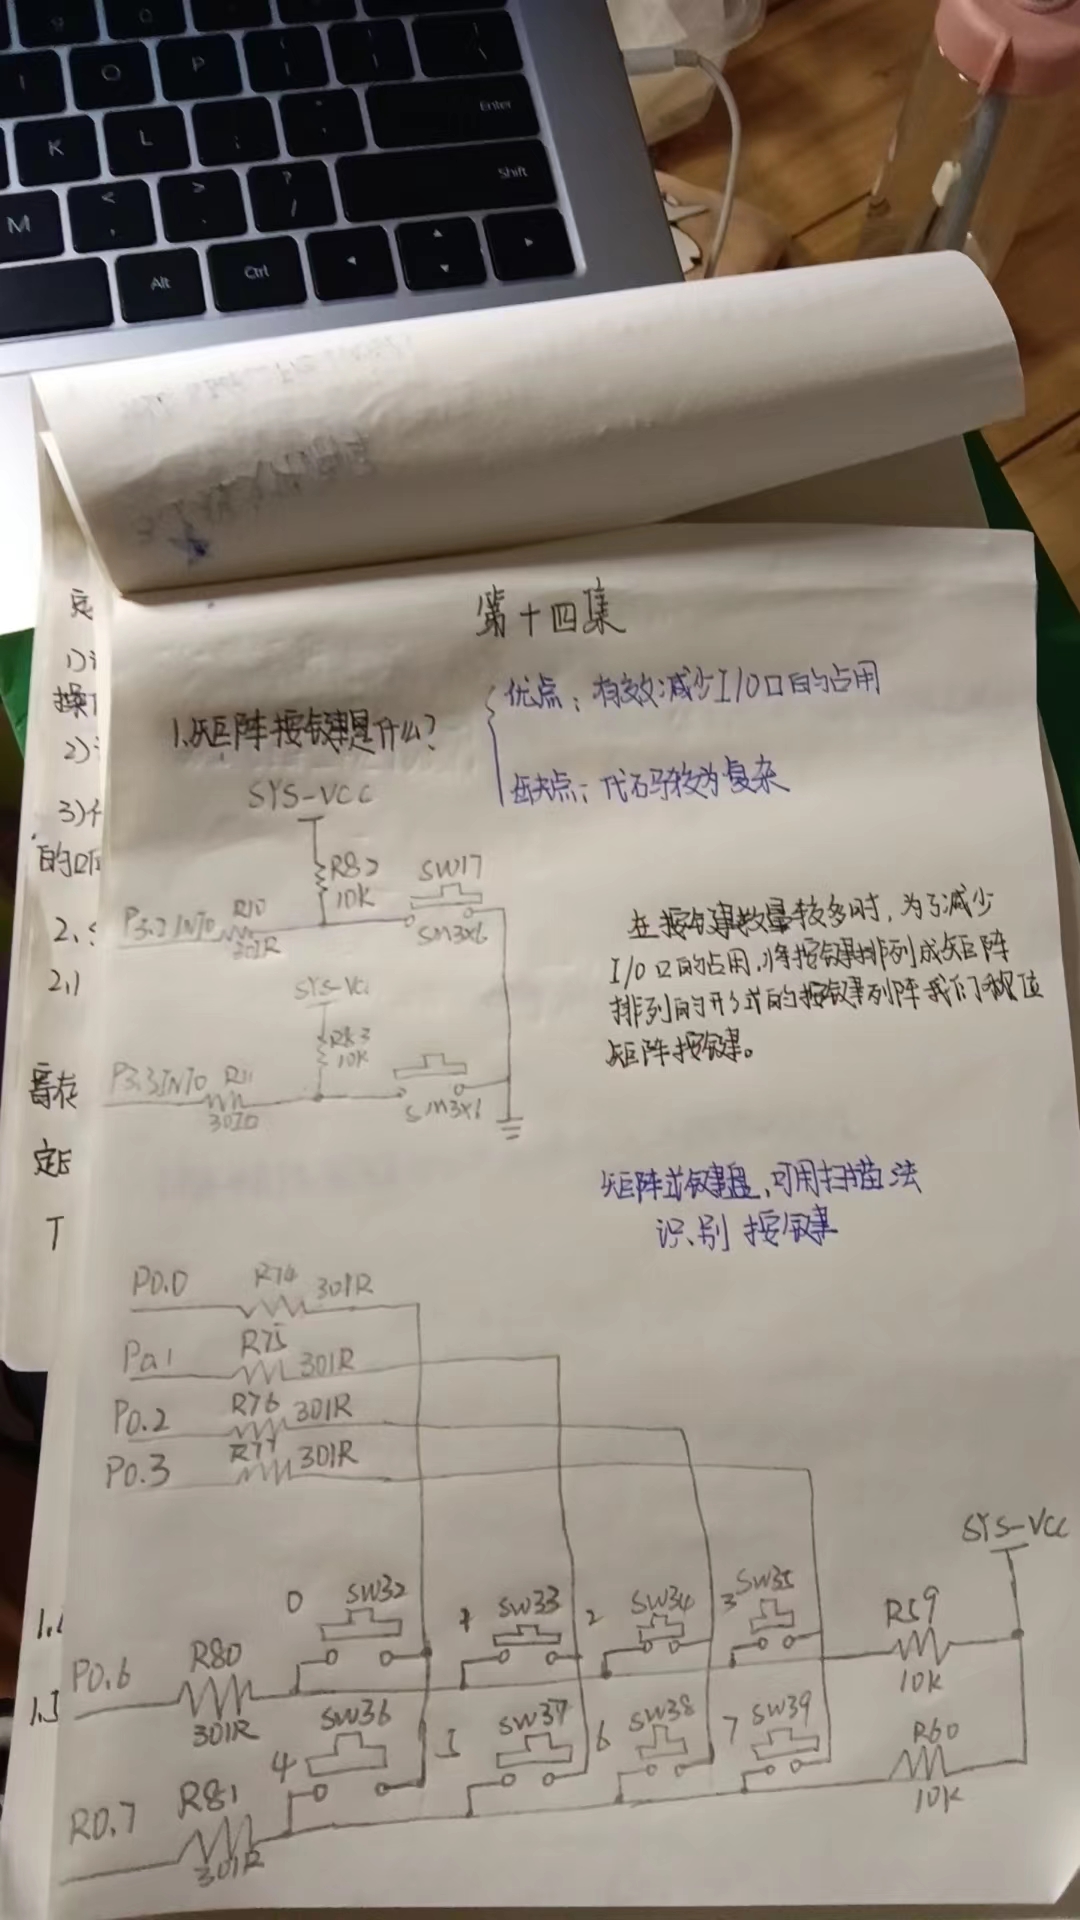 O
P
K
L
Enter
M
Shift
Alt
Ctrl
第十四集
1.矩阵按键是什么?
优点：有效减少I/O口的占用
缺点：代码较为复杂
SYS-VCC
R82
10K
SW17
SM3x6
P3.2INT0
R10
301R
SYS-VCC
R83
10K
SM3x6
P3.3INT0
R11
在按键数量较多时，为了减少
I/O口的占用，将按键排列成矩阵
排列的形式的按键列阵我们称位
矩阵按键。
矩阵式键盘，可用扫描法
识别按键
1)
2)
3)
2.
2.1
暂存
定
T
P0.0
R74
301R
P0.1
R75
301R
P0.2
R76
301R
P0.3
R77
301R
SYS-VCC
0
SW32
1
SW33
2
SW34
3
SW35
R59
10K
P0.6
R80
301R
4
SW36
5
SW37
6
SW38
7
SW39
R60
10K
R0.7
R81
301R